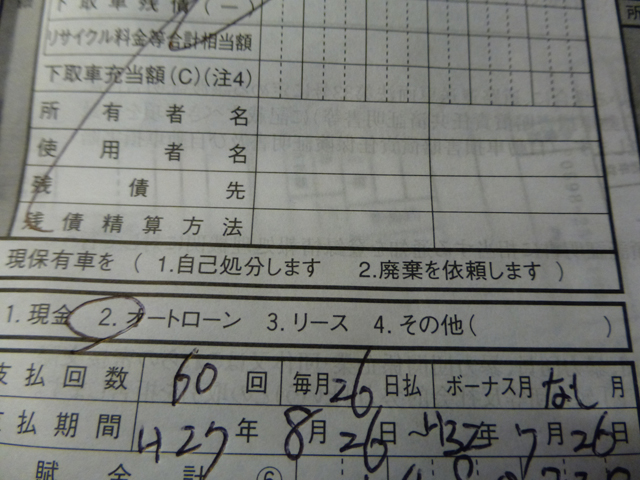 下取車残債(ー)
リサイクル料金等合計相当額
下取車充当額(C)(注4)
所有者名
使用者名
残債先
残債精算方法
現保有車を ( 1.自己処分します 2.廃棄を依頼します )
1.現金 2.オートローン 3.リース 4.その他( )
支払回数 60 回 毎月 26 日払 ボーナス月 なし 月
支払期間 H27年 8月 26日 〜H32年 7月 26日
賦金計 ⑥